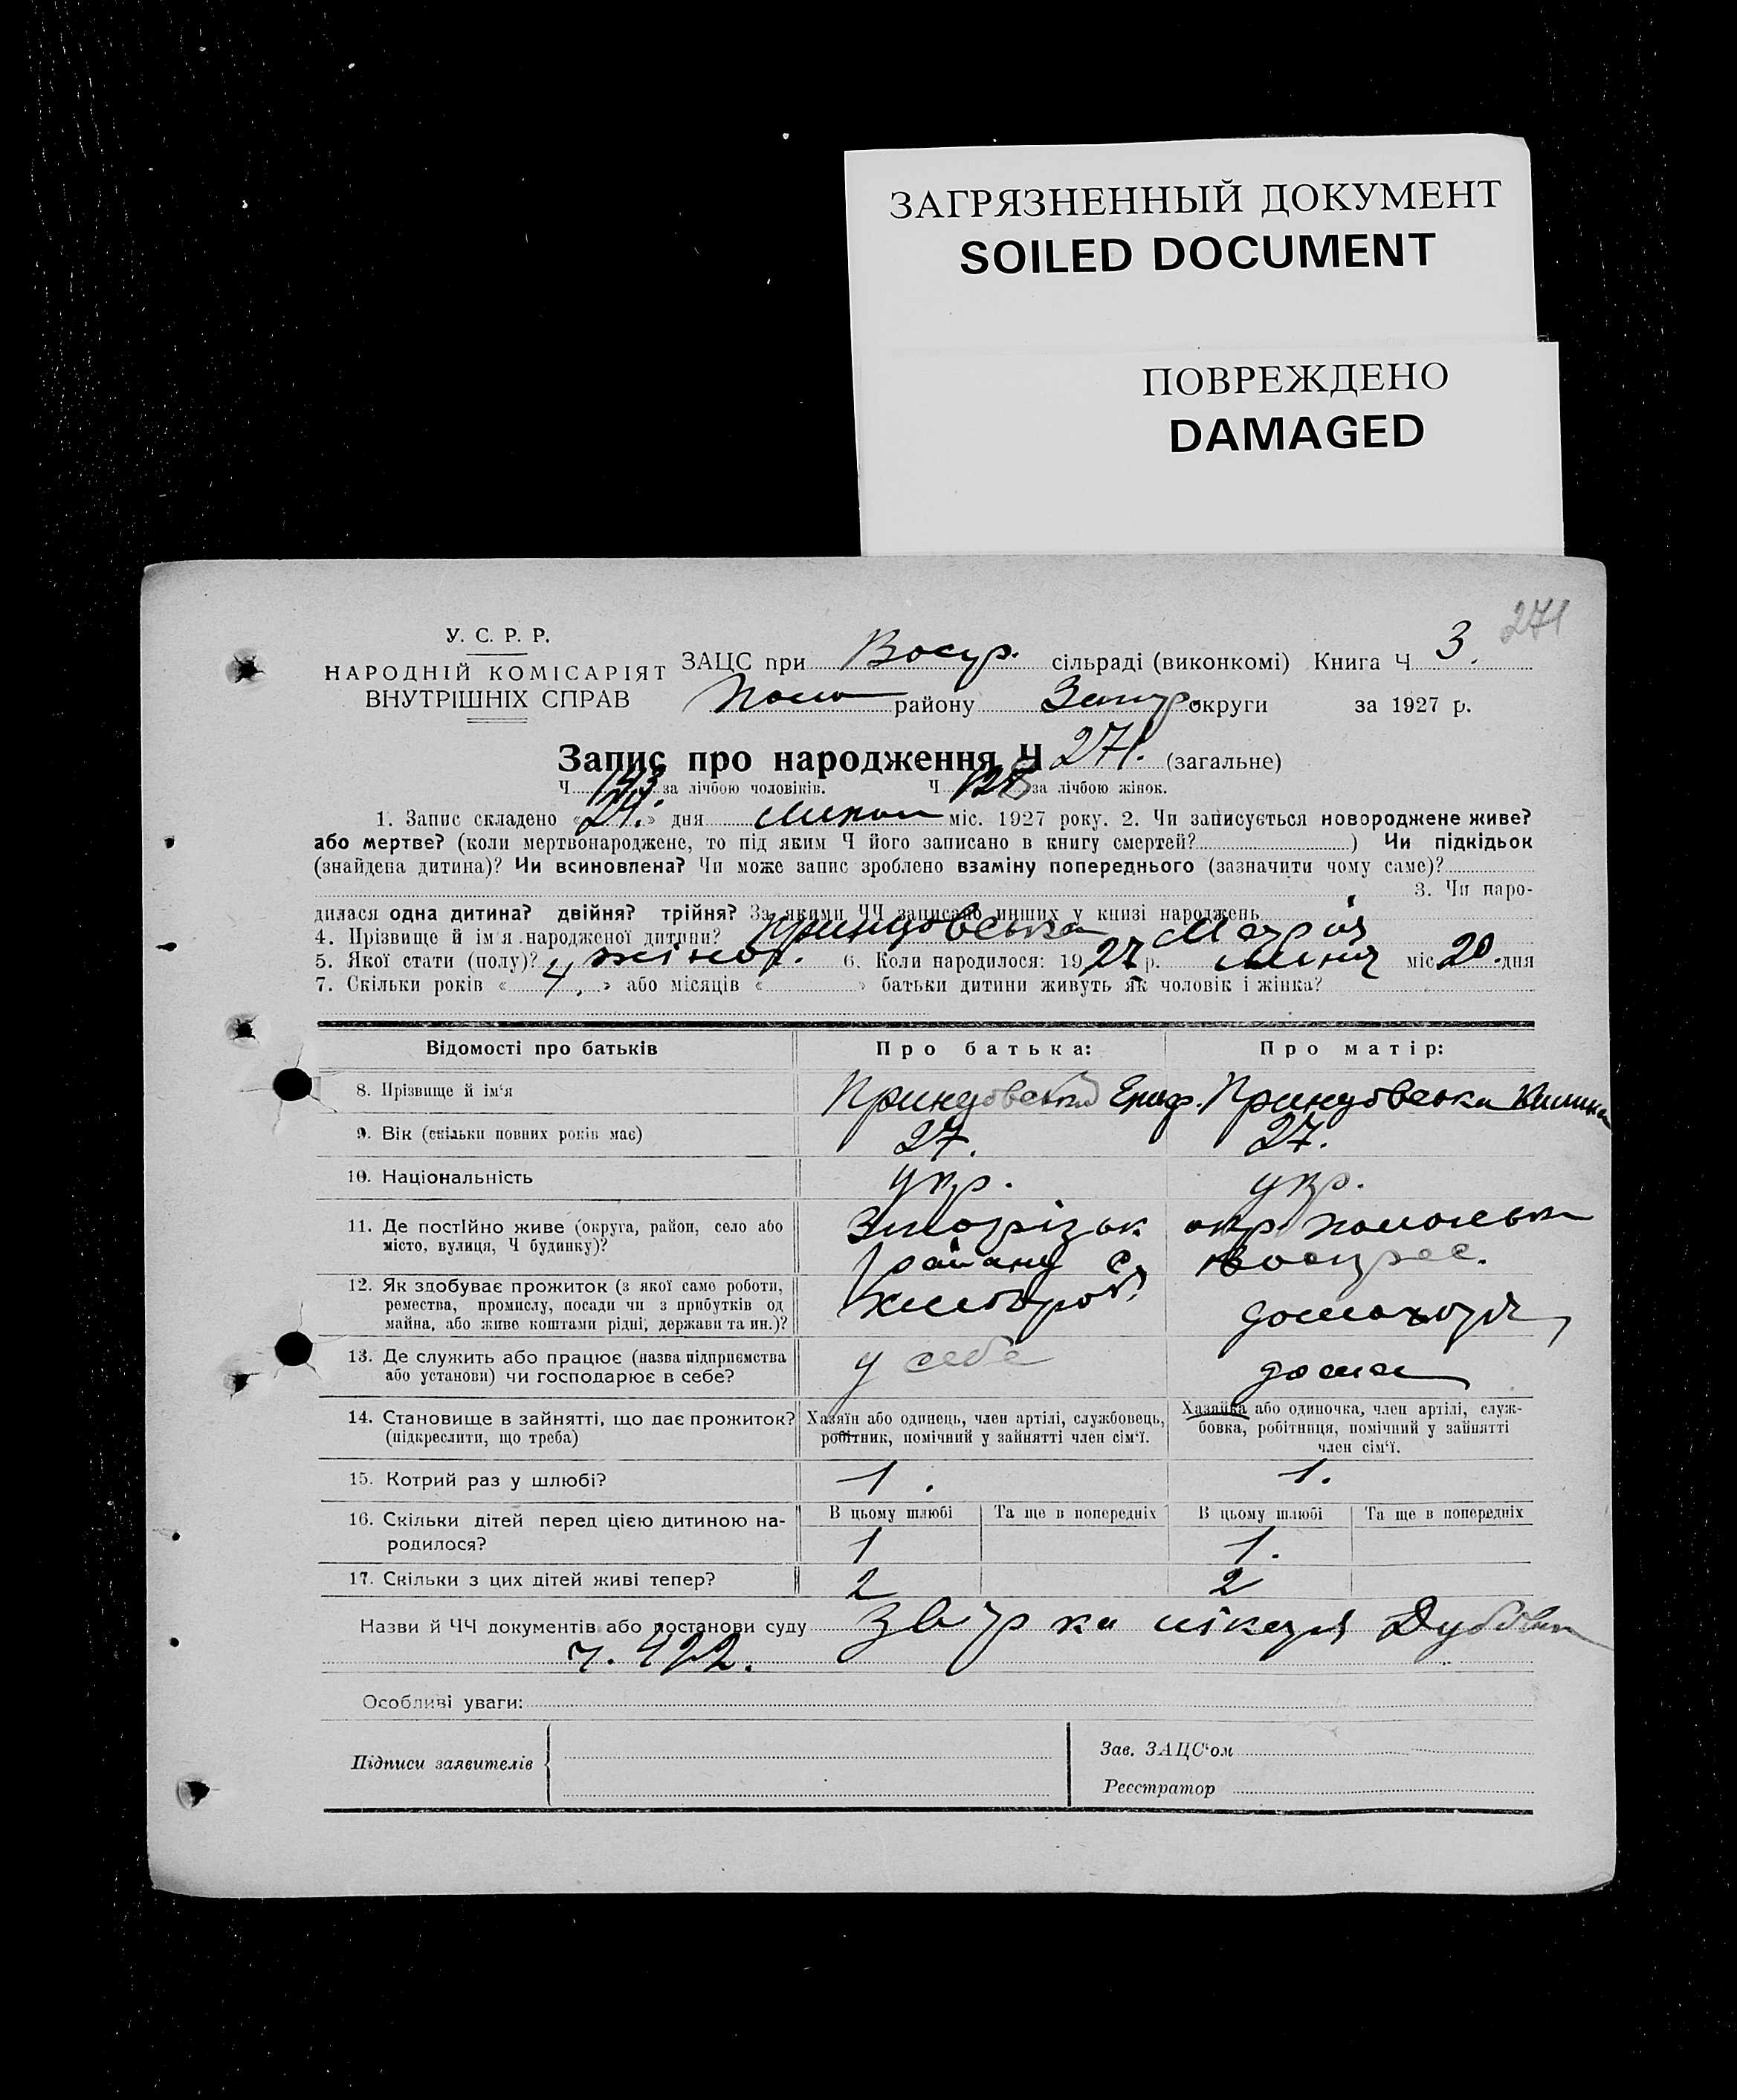 ЗАГРЯЗНЕННЫЙ ДОКУМЕНТ
SOILED DOCUMENT
ПОВРЕЖДЕНО
DAMAGED
271
У. С. Р. Р.
НАРОДНІЙ КОМІСАРІЯТ
ВНУТРІШНІХ СПРАВ
ЗАЦС при Воскр. сільраді (виконкомі) Книга Ч 3.
району Запор. округи за 1927 р.
Запис про народження Ч 271. (загальне)
Ч 143 за лічбою чоловіків. Ч 128 за лічбою жінок.
1. Запис складено « 21. » дня міс. 1927 року. 2. Чи записується новороджене живе?
або мертве? (коли мертвонароджене, то під яким Ч його записано в книгу смертей? ) Чи підкідьок
(знайдена дитина)? Чи всиновлена? Чи може запис зроблено взаміну попереднього (зазначити чому саме)?
3. Чи наро-
дилася одна дитина? двійня? трійня? За якими ЧЧ записано инших у книзі народжень
4. Прізвище й ім'я народженої дитини? Принцовська Марія
5. Якої стати (полу)? жіноч. 6. Коли народилося: 1927 р. міс 20. дня
7. Скільки років « 4. » або місяців « » батьки дитини живуть як чоловік і жінка?
Відомості про батьків Про батька: Про матір:
8. Прізвище й ім'я Принцовський Принцовська
9. Вік (скільки повних років має) 27. 27.
10. Національність укр. укр.
11. Де постійно живе (округа, район, село або
місто, вулиця, Ч будинку)?
Запорізьк окр.
району с. Воскрес.
12. Як здобуває прожиток (з якої саме роботи,
ремества, промислу, посади чи з прибутків од
майна, або живе коштами рідні, держави та ин.)?
Хлібороб домохозя
13. Де служить або працює (назва підприємства
або установи) чи господарює в себе?
у себе дома
14. Становище в зайнятті, що дає прожиток?
(підкреслити, що треба)
Хазяїн або одинець, член артілі, службовець,
робітник, помічний у зайнятті член сім'ї.
Хазяйка або одиночка, член артілі, служ-
бовка, робітниця, помічний у зайнятті
член сім'ї.
15. Котрий раз у шлюбі? 1. 1.
16. Скільки дітей перед цією дитиною на-
родилося?
В цьому шлюбі Та ще в попередніх В цьому шлюбі Та ще в попередніх
1 1.
17. Скільки з цих дітей живі тепер? 2 2
Назви й ЧЧ документів або постанови суду
ч. 422.
Особливі уваги:
Підписи заявителів
Зав. ЗАЦС'ом
Реєстратор